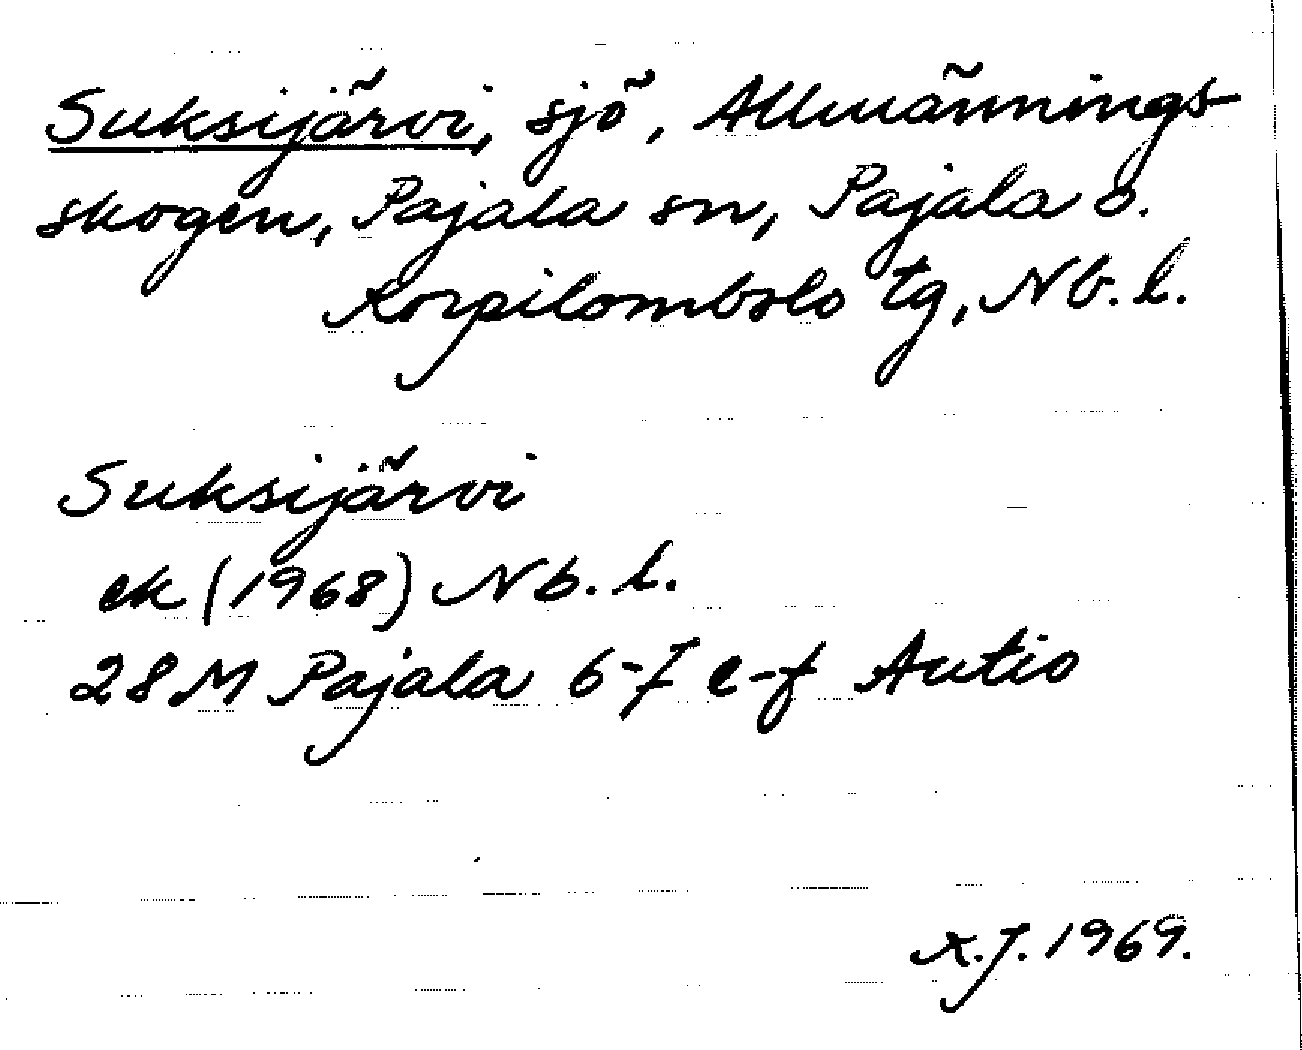 Suksijärvi, sjö, Allmännings-
skogen, Pajala sn, Pajala o.
Korpilombolo tg, Nb. l.
Suksijärvi
ek (1968) Nb. l.
28 M Pajala 6-7 e-f Autio
K.J. 1969.